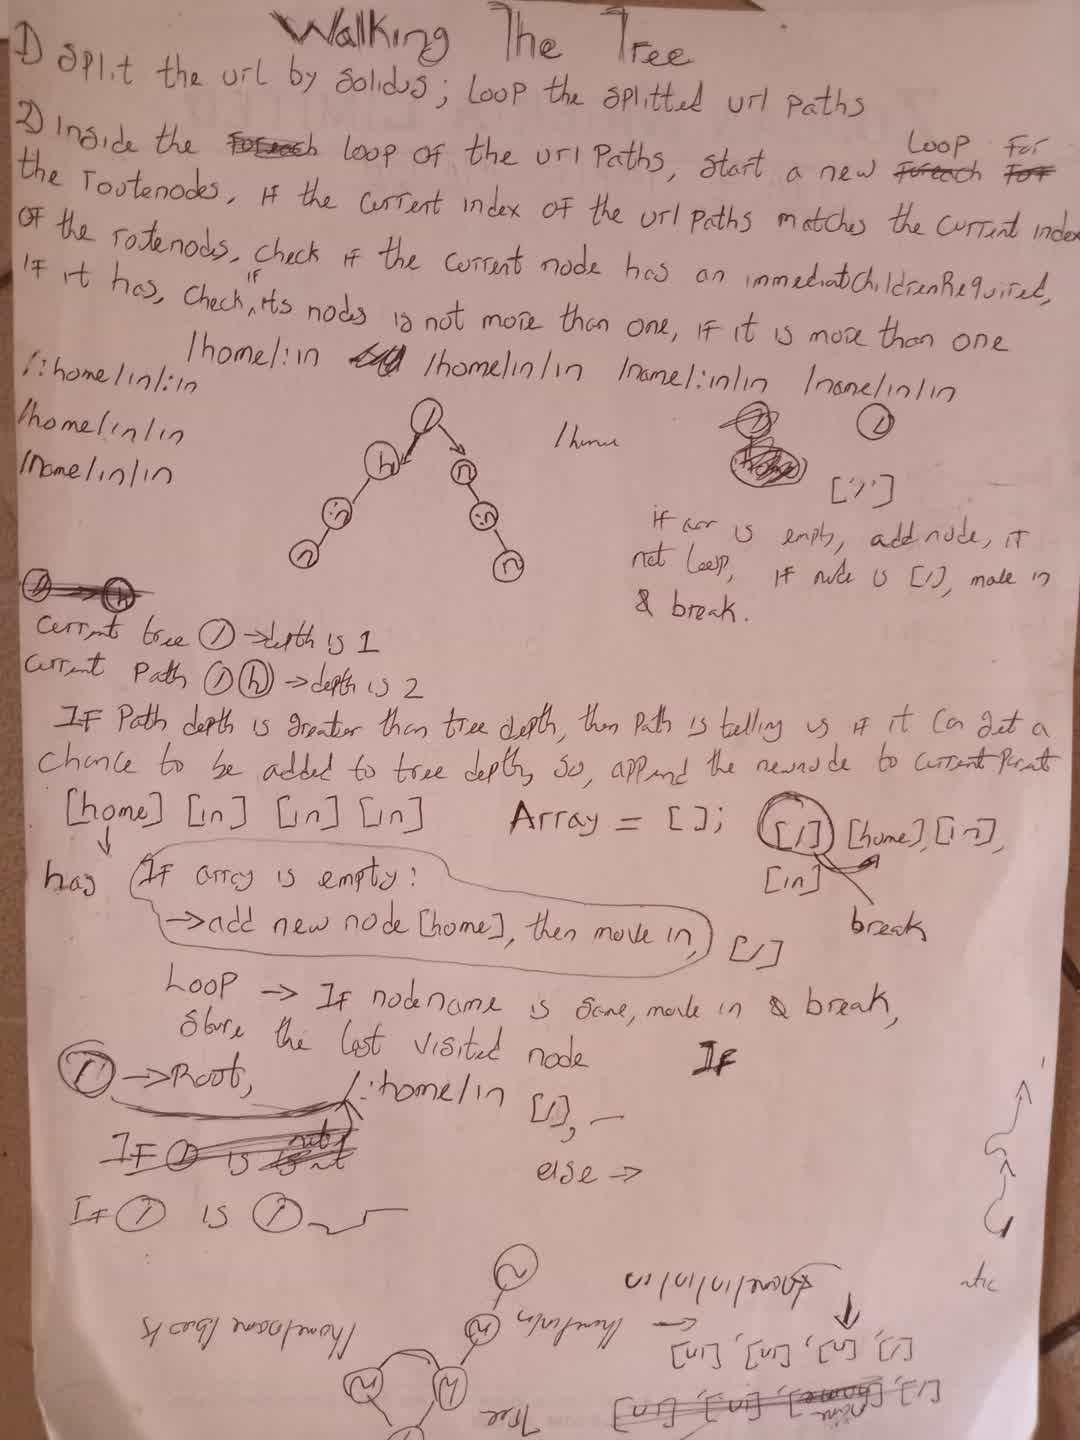 Walking The Tree
1) Split the url by solidus; Loop the splitted url paths
2) Inside the loop of the url Paths, start a new Loop For
the routenodes, if the current index of the url paths matches the current index
of the rotenodes, check if the current node has an immediatChildrenRequired,
If it has, check if its nodes is not more than one, if it is more than one
/home/:in /home/in/in /name/:in/in /name/in/in
/:home/in/:in
/home/in/in
/name/in/in
/
h n
:n :n
n n
/home
/
[/]
if arr is empty, add node, if
not loop, if node is [/], move in
& break.
Current tree / → depth is 1
Current Path / h → depth is 2
If Path depth is greater than tree depth, then Path is telling us if it can get a
chance to be added to tree depth, so, append the newnode to currentParent
[home] [in] [in] [in]
Array = []; [/] [home], [in],
[in]
break
has
If array is empty:
→ add new node [home], then move in, [/]
Loop → If nodename is same, move in & break,
store the last visited node
If
/ → Root, /:home/in [/], —
else →
If / is /
[/], [n], [in], [in]
Tree